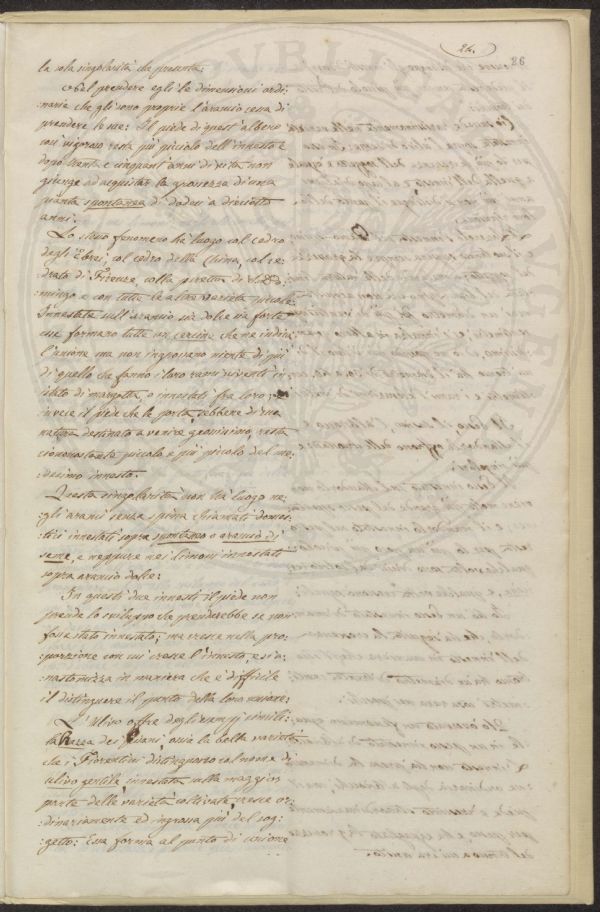 26.
26
la sola singolarità che presenta:
col prendere egli le dimensioni ordi:
:narie che gli sono proprie l'arancio cessa di
prendere le sue: Il piede di quest'albero
così vigoroso resta più piccolo dell'innesto e
dopo trenta e cinquant'anni di vita non
giunge ad acquistar la grossezza di una
pianta spontanea di dodeci a dieciotto
anni.
Lo stesso fenomeno ha luogo col cedro
degli Ebrei, col cedro della China, col ce:
:drato di Firenze, colla peretta di S. Do:
:mingo e con tutte le altre varietà
Innestate sull'arancio sia dolce sia forte
esse formano tutte un cercine che ne indica
l'unione ma non ingrossano niente di più
di quello che fanno i loro rami viventi in
istato di margotta, o innestati fra loro;
invece il piede che le porta, sebbene di sua
natura destinato a venire grossissimo, resta
ciononostante piccolo e più piccolo del me:
:desimo innesto.
Questa singolarità non ha luogo ne:
:gli aranci senza spina chiamati domes:
:tici innestati sopra spontaneo o arancio di
seme, e neppure nei limoni innestati
sopra arancio dolce:
In questi due innesti il piede non
prende lo sviluppo che prenderebbe se non
fosse stato innestato; ma cresce nella pro:
:porzione con cui cresce l'innesto, e si a:
:nastomizza in maniera che è difficile
il distinguere il punto della loro unione:
L'Ulivo offre degli esempj simili:
la razza dei Pisani, ossia la bella varietà
che i Fiorentini distinguono col nome di
ulivo gentile, innestata sulla maggior
parte delle varietà coltivate, cresce or:
:dinariamente ed ingrossa più del sog:
:getto: Essa forma al punto di unione